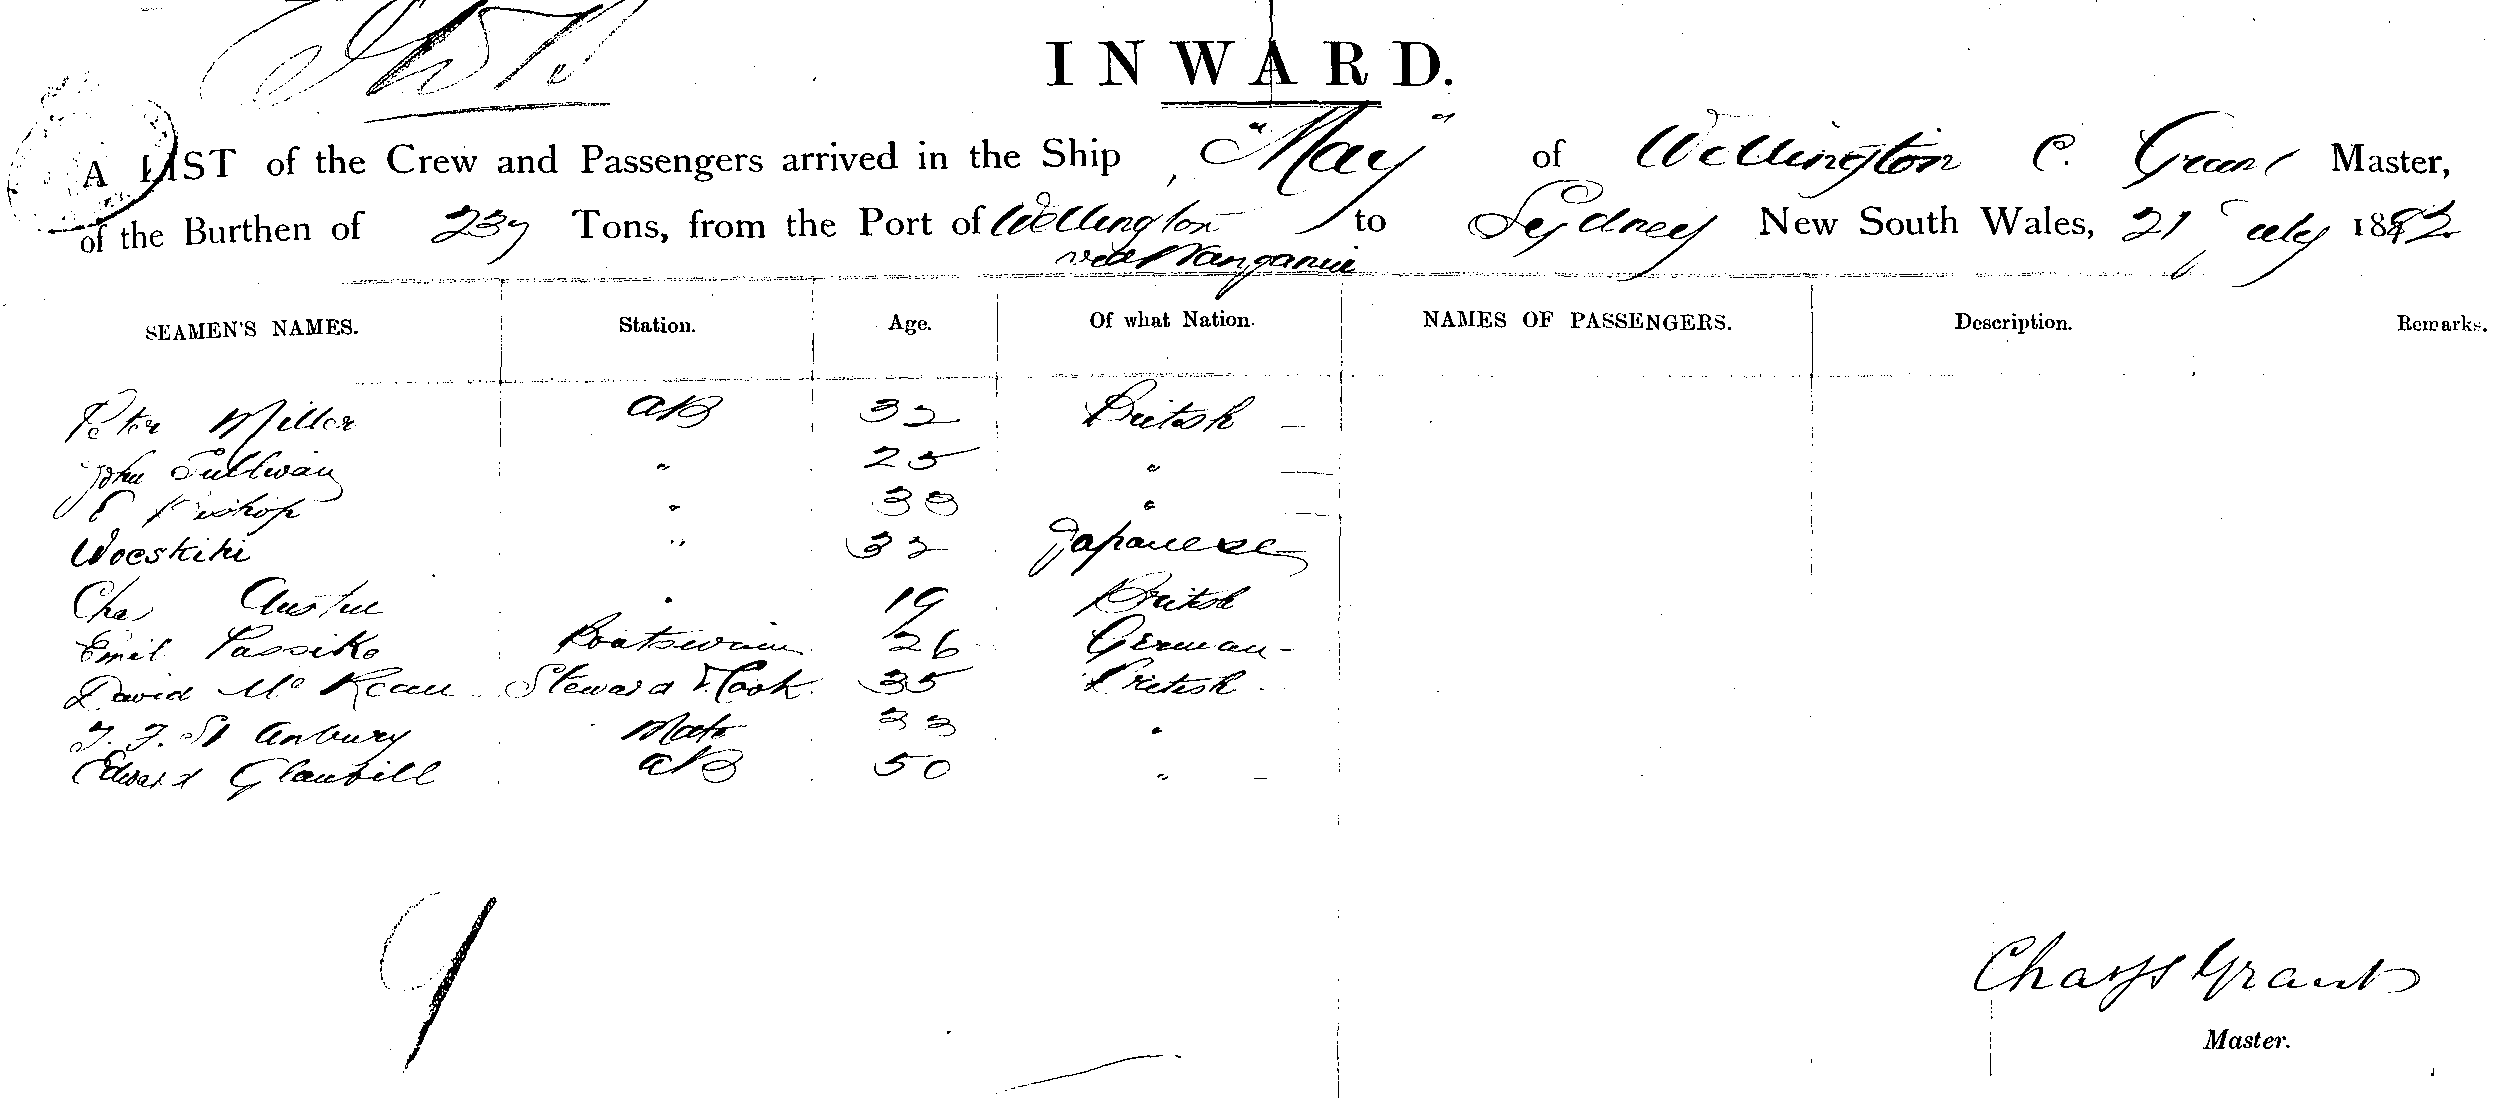 INWARD.
A LIST of the Crew and Passengers arrived in the Ship "May" of Wellington C. Grant Master,
of the Burthen of 237 Tons, from the Port of Wellington to Sydney New South Wales, 21 July 1892
via Wanganui
SEAMEN'S NAMES. Station. Age. Of what Nation. NAMES OF PASSENGERS. Description. Remarks.
Peter Miller AB 32 British
John Sullivan " 25 "
E Bishop " 38 "
Woeskiki " 32 Japanese
Chas Austin " 19 British
Emil Passike Boatswain 26 German
David Mc Kean Steward & Cook 35 British
Mate 33 "
Edward Glanvill AB 50 "
9
Grant
Master.